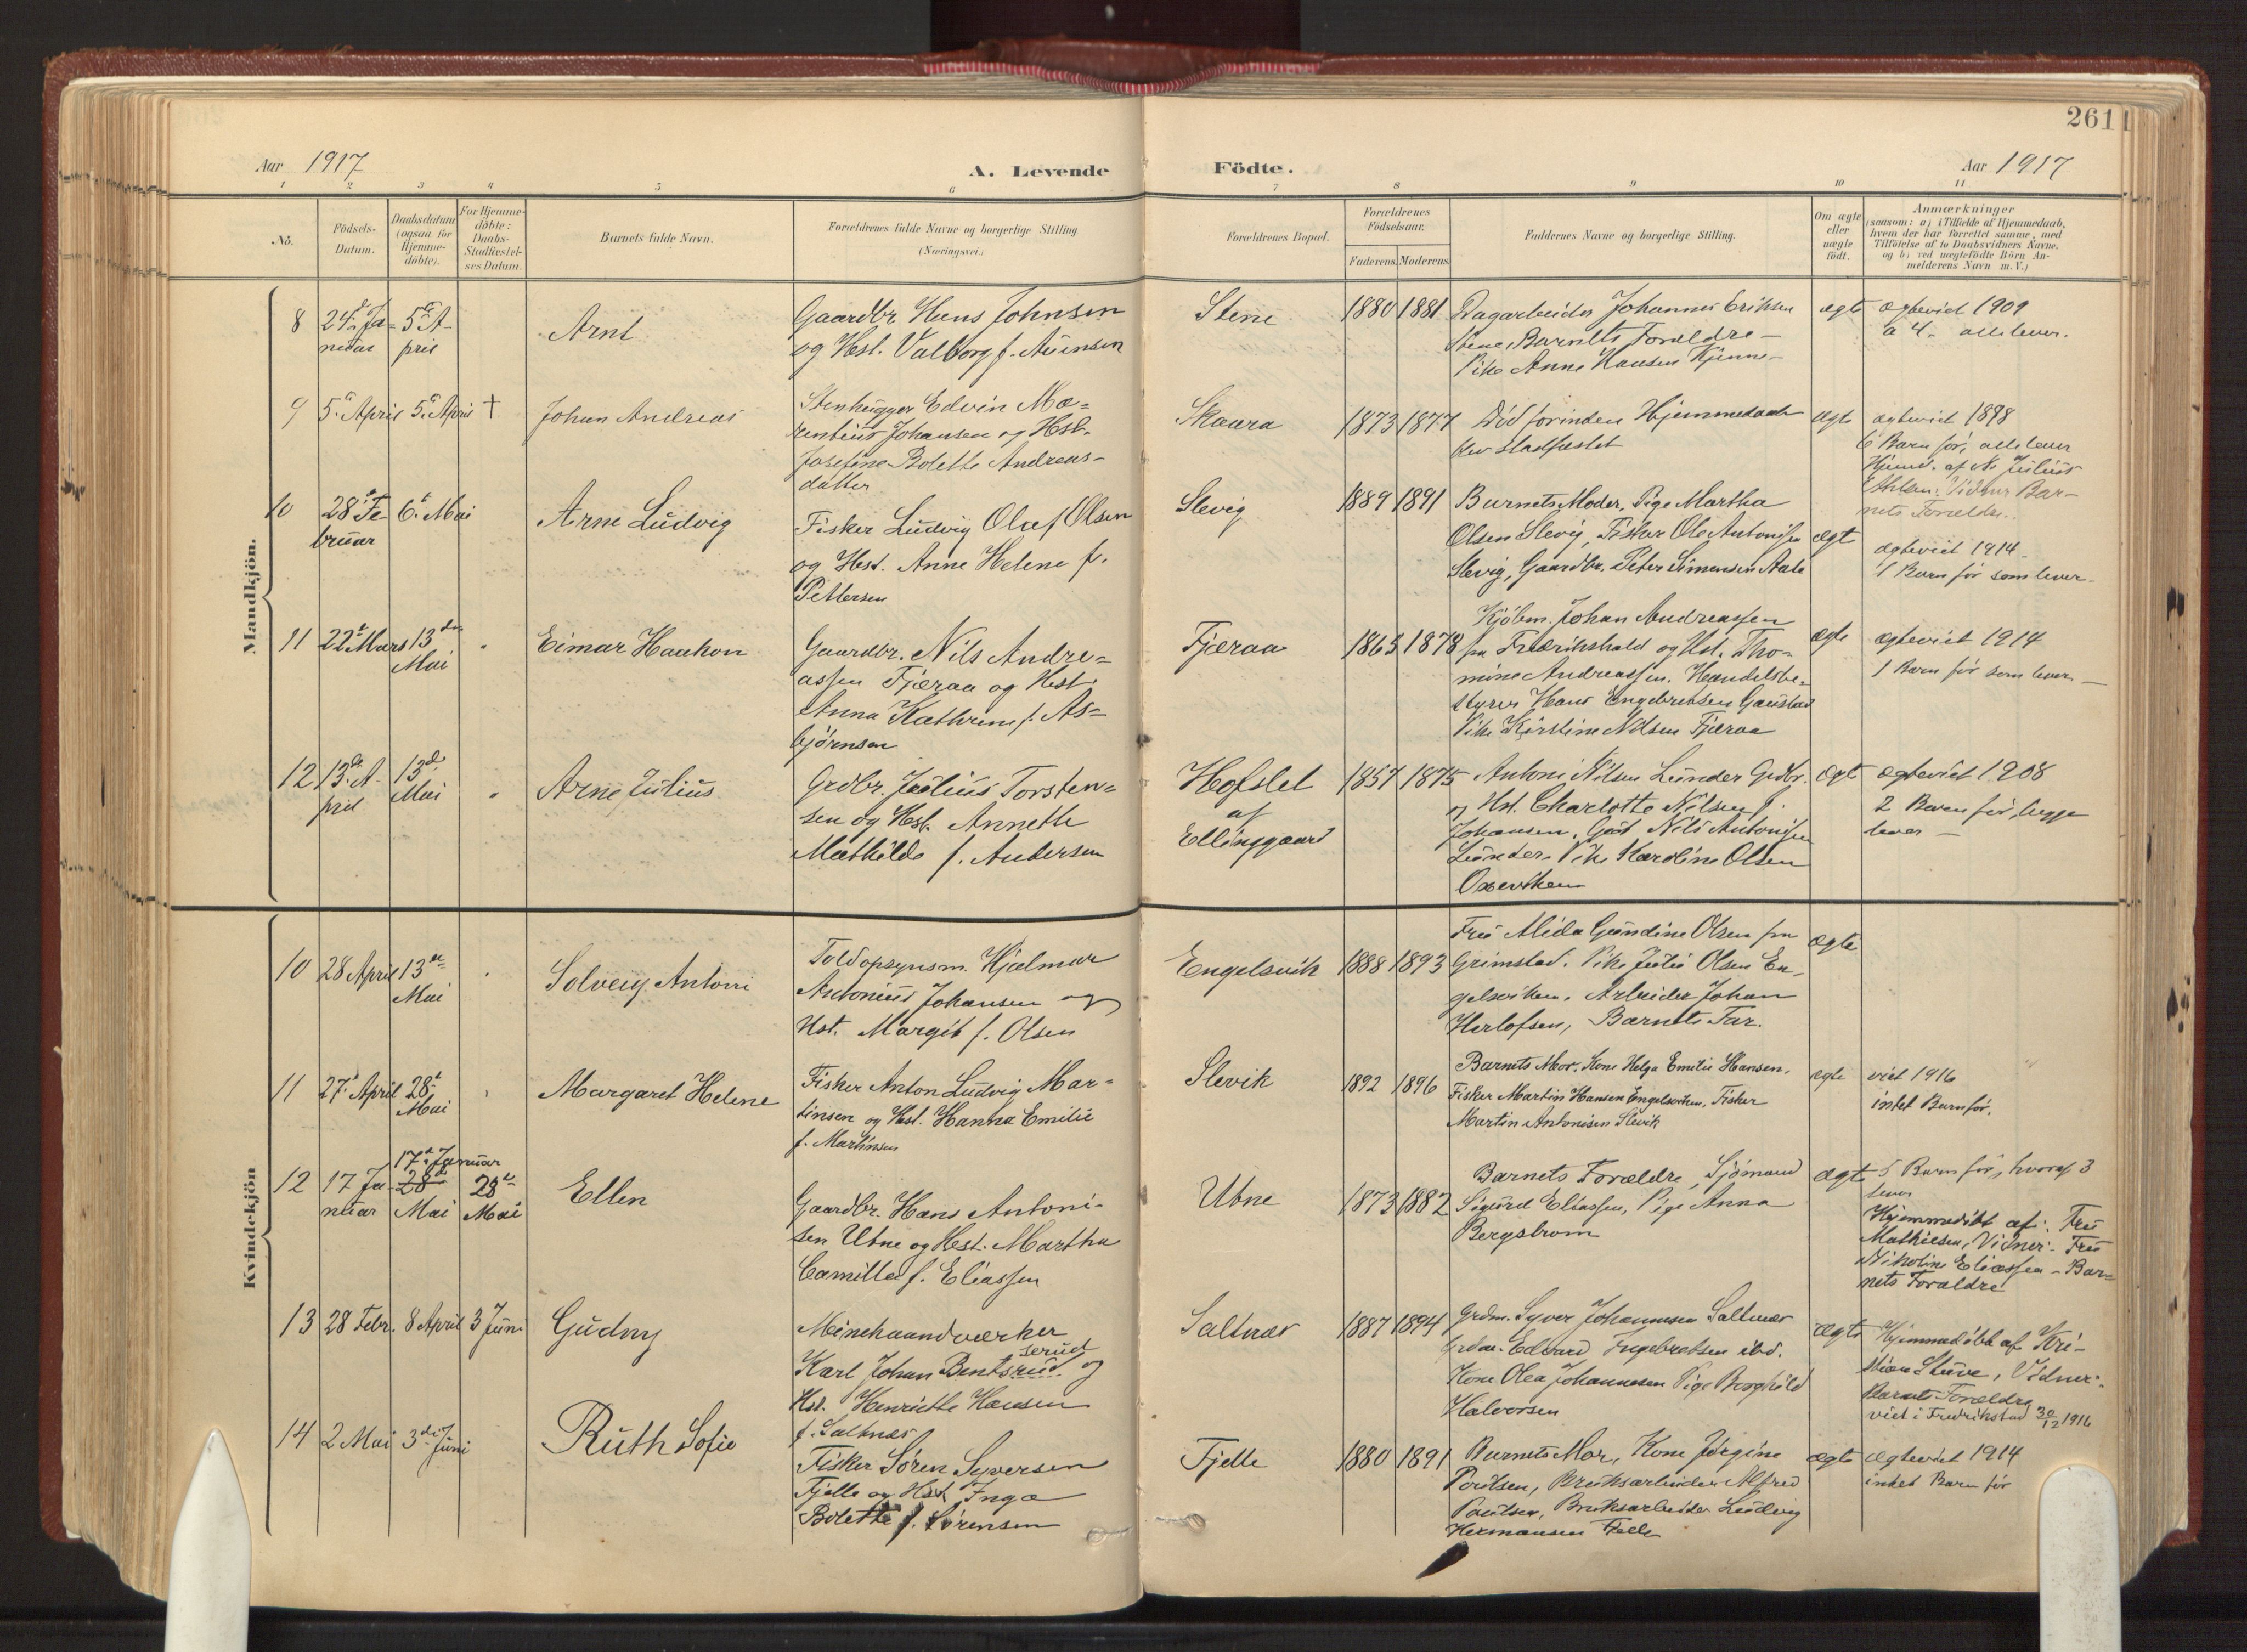 261
Aar 1917
A. Levende
Födte.
Aar 1917
1 2 3 4 5 6 7 8 9 10 11
No.
Födsels-
Datum.
Daabsdatum
(ogsaa for
Hjemme-
döbte).
For Hjemme-
döbte:
Daabs-
Stadfæstel-
ses Datum.
Barnets fulde Navn.
Forældrenes fulde Navne og borgerlige Stilling
(Næringsvei.)
Forældrenes Bopæl.
Forældrenes
Födselsaar.
Faderens. Moderens.
Faddernes Navne og borgerlige Stilling.
Om ægte
eller
uægte
födt.
Anmærkninger
(saasom: a) i Tilfælde af Hjemmedaab,
hvem der har forrettet samme, med
Tilföielse af to Daabsvidners Navne.
og b) ved uægtefödte Börn An-
melderens Navn m. V.)
Mandkjön.
8
24. Ja-
nuar
5. A-
pril
Arnt
Gaardbr. Hans Johnsen
og Hst. Valborg f.
Stene
1880 1881
Dagarbeider Johannes Eriksen
Stene, Barnets Forældre -
Pike Anne Hansen
ægte
ægteviet 1909
a 4. alle lever.
9
5. April
5. April
†
Johan Andreas
Stenhugger Edvin Ma-
rentius Johansen og Hst.
Josefine Bolette Andreas-
datter
Skaara
1873 1877
Död forinden Hjemmedaab
blev stadfæstet
ægte
ægteviet 1898
6 Barn för, alle lever
Hjemd. af N. Julius
Vidner Bar-
nets Forældre.
10
28. Fe-
bruar
6. Mai
Arne Ludvig
Fisker Ludvig Olaf Olsen
og Hst. Anne Helene f.
Pettersen
Slevig
1889 1891
Barnets Moder, Pige Martha
Olsen Slevig, Fisker Ole Antonisen
Slevig, Gaardbr. Peter Simensen Aale
ægt
ægteviet 1914
1 Barn för som lever.
11
22. Mars
13
Mai
Einar Haakon
Gaardbr. Nils Andre-
assen Fjæraa og Hst.
Anna Kathrine f. As-
björnsen
Fjæraa
1865 1878
Kjöbm. Johan Andreassen
fra Fredrikshald og Hst. Tho-
mine Andreassen. Handelsbe-
styrer Hans Engebretsen Gaustad
Pike Kirstine Nilsen Fjæraa
ægte
ægteviet 1914
1 Barn för som lever
12
13. A-
pril
13d
Mai
Arne Julius
Grdbr. Julius Torsten-
sen og Hst. Annette
Mathilde f. Andersen
Hofslet
af
Ellinggaard
1857 1875
Antoni Nilsen Lunder Grdbr.
og Hst. Charlotte Nilsen f.
Johansen, Gbst. Nils Antonisen
Lunder. Pike Karoline Olsen
Oxeviken
ægt
ægteviet 1908
2 Barn för, begge
lever
Kvindekjön
10
28 April
13
Mai
Solveig Antoni
Toldopsynsm. Hjalmar
Antonius Johansen og
Hst. Margit f. Olsen
Engelsvik
1888 1893
Fru Alida Gundine Olsen fra
Grimstad. Pike Julie Olsen En-
gelsviken. Arbeider Johan
Herlofsen, Barnets Far.
ægte
11
27. April
28.
Mai
Margaret Helene
Fisker Anton Ludvig Mar-
tinsen og Hst. Hanna Emilie
f. Martinsen
Slevik
1892 1896
Barnets Mor. Kone Helga Emilie Hansen,
Fisker Martin Hansen Engelsviken, Fisker
Martin Antonisen Slevik
ægte
viet 1916
intet Barn för.
12
17 Ja-
nuar
17. Januar
28
Mai
28
Mai
Ellen
Gaardbr. Hans Antoni-
sen Utne og Hst. Martha
Camilla f. Eliassen
Utne
1873 1882
Barnets Forældre, Sjömand
Sigurd Eliassen, Pige Anna
Bergstrom
ægt
5 Barn för, hvoraf 3
lever
Hjemmedöbt af: Fru
Mathiesen, Vidner: Fru
Nikoline Eliassen - Bar-
nets Forældre
13
28 Febr.
8 April
3 Juni
Gudny
Minehaandværker
serud
Karl Johan Bentsrud og
Hst. Henriette Hansen
f. Saltnes
Saltnes
1887 1894
Grdm. Syver Johannesen Saltnes
Grdm. Edvard Ingebretsen ibd.
Kone Olea Johannesen Pige Borghild
Halvorsen
ægte
Hjemmedöbt af Kri-
stian Stuve, Vidner:
Barnets Forældre
viet i Fredrikstad 30/12 1916
14
2 Mai
3die Juni
Ruth Sofie
Fisker Sören Syversen
Fjelle og Hst. Inga
Bolette f. Sörensen
Fjelle
1880 1891
Barnets Mor, Kone Jörgine
Poulsen, Bruksarbeider Alfred
Paulsen, Bruksarbeider Ludvig
Hermansen Fjelle
ægte
ægteviet 1914
intet Barn för